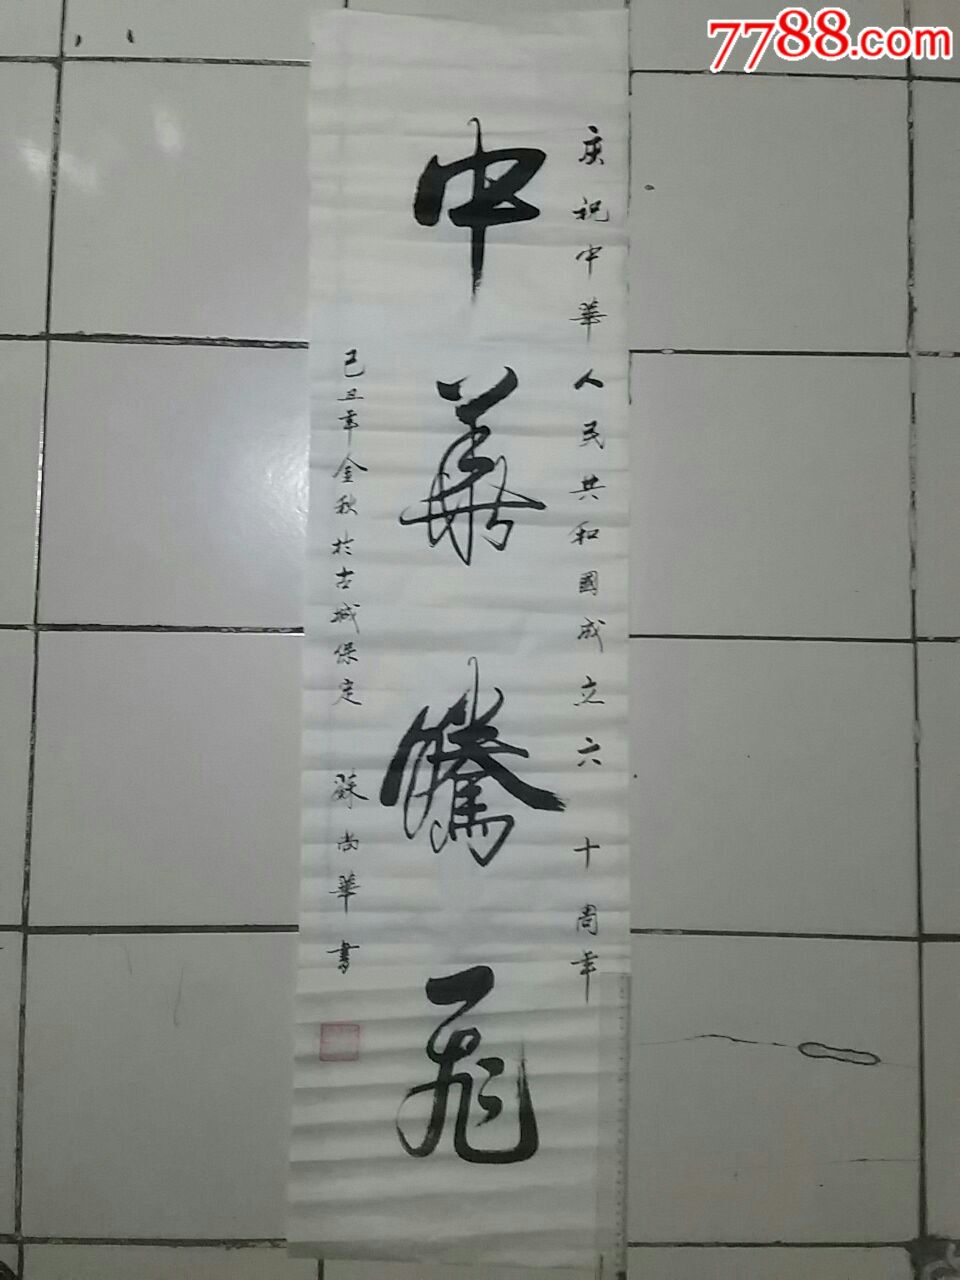 7788.com
庆祝中華人民共和國成立六十周年
中華騰飛
己丑年金秋於古城保定 蘇尚華書